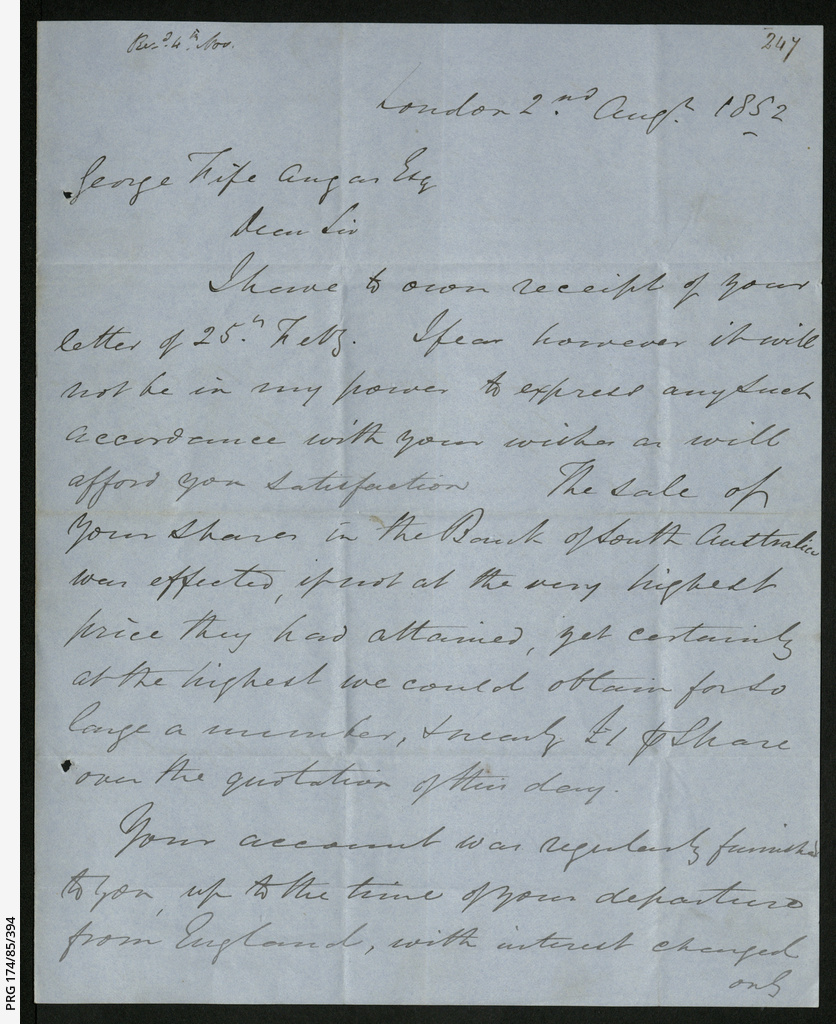 Rec.d 4th Nov.
247
London 2nd Augt. 1852
George Fife Angas Esq
Dear Sir
I have to own receipt of your
letter of 25th Feby. I fear however it will
not be in my power to express any such
accordance with your wishes as will
afford you satisfaction The sale of
your shares in the Bank of South Australia
was effected, if not at the very highest
price they had attained, yet certainly
at the highest we could obtain for so
large a number, & nearly £1 ⅌ Share
over the quotation of this day.
Your account was regularly furnished
to you, up to the time of your departure
from England, with interest charged
only
PRG 174/85/394